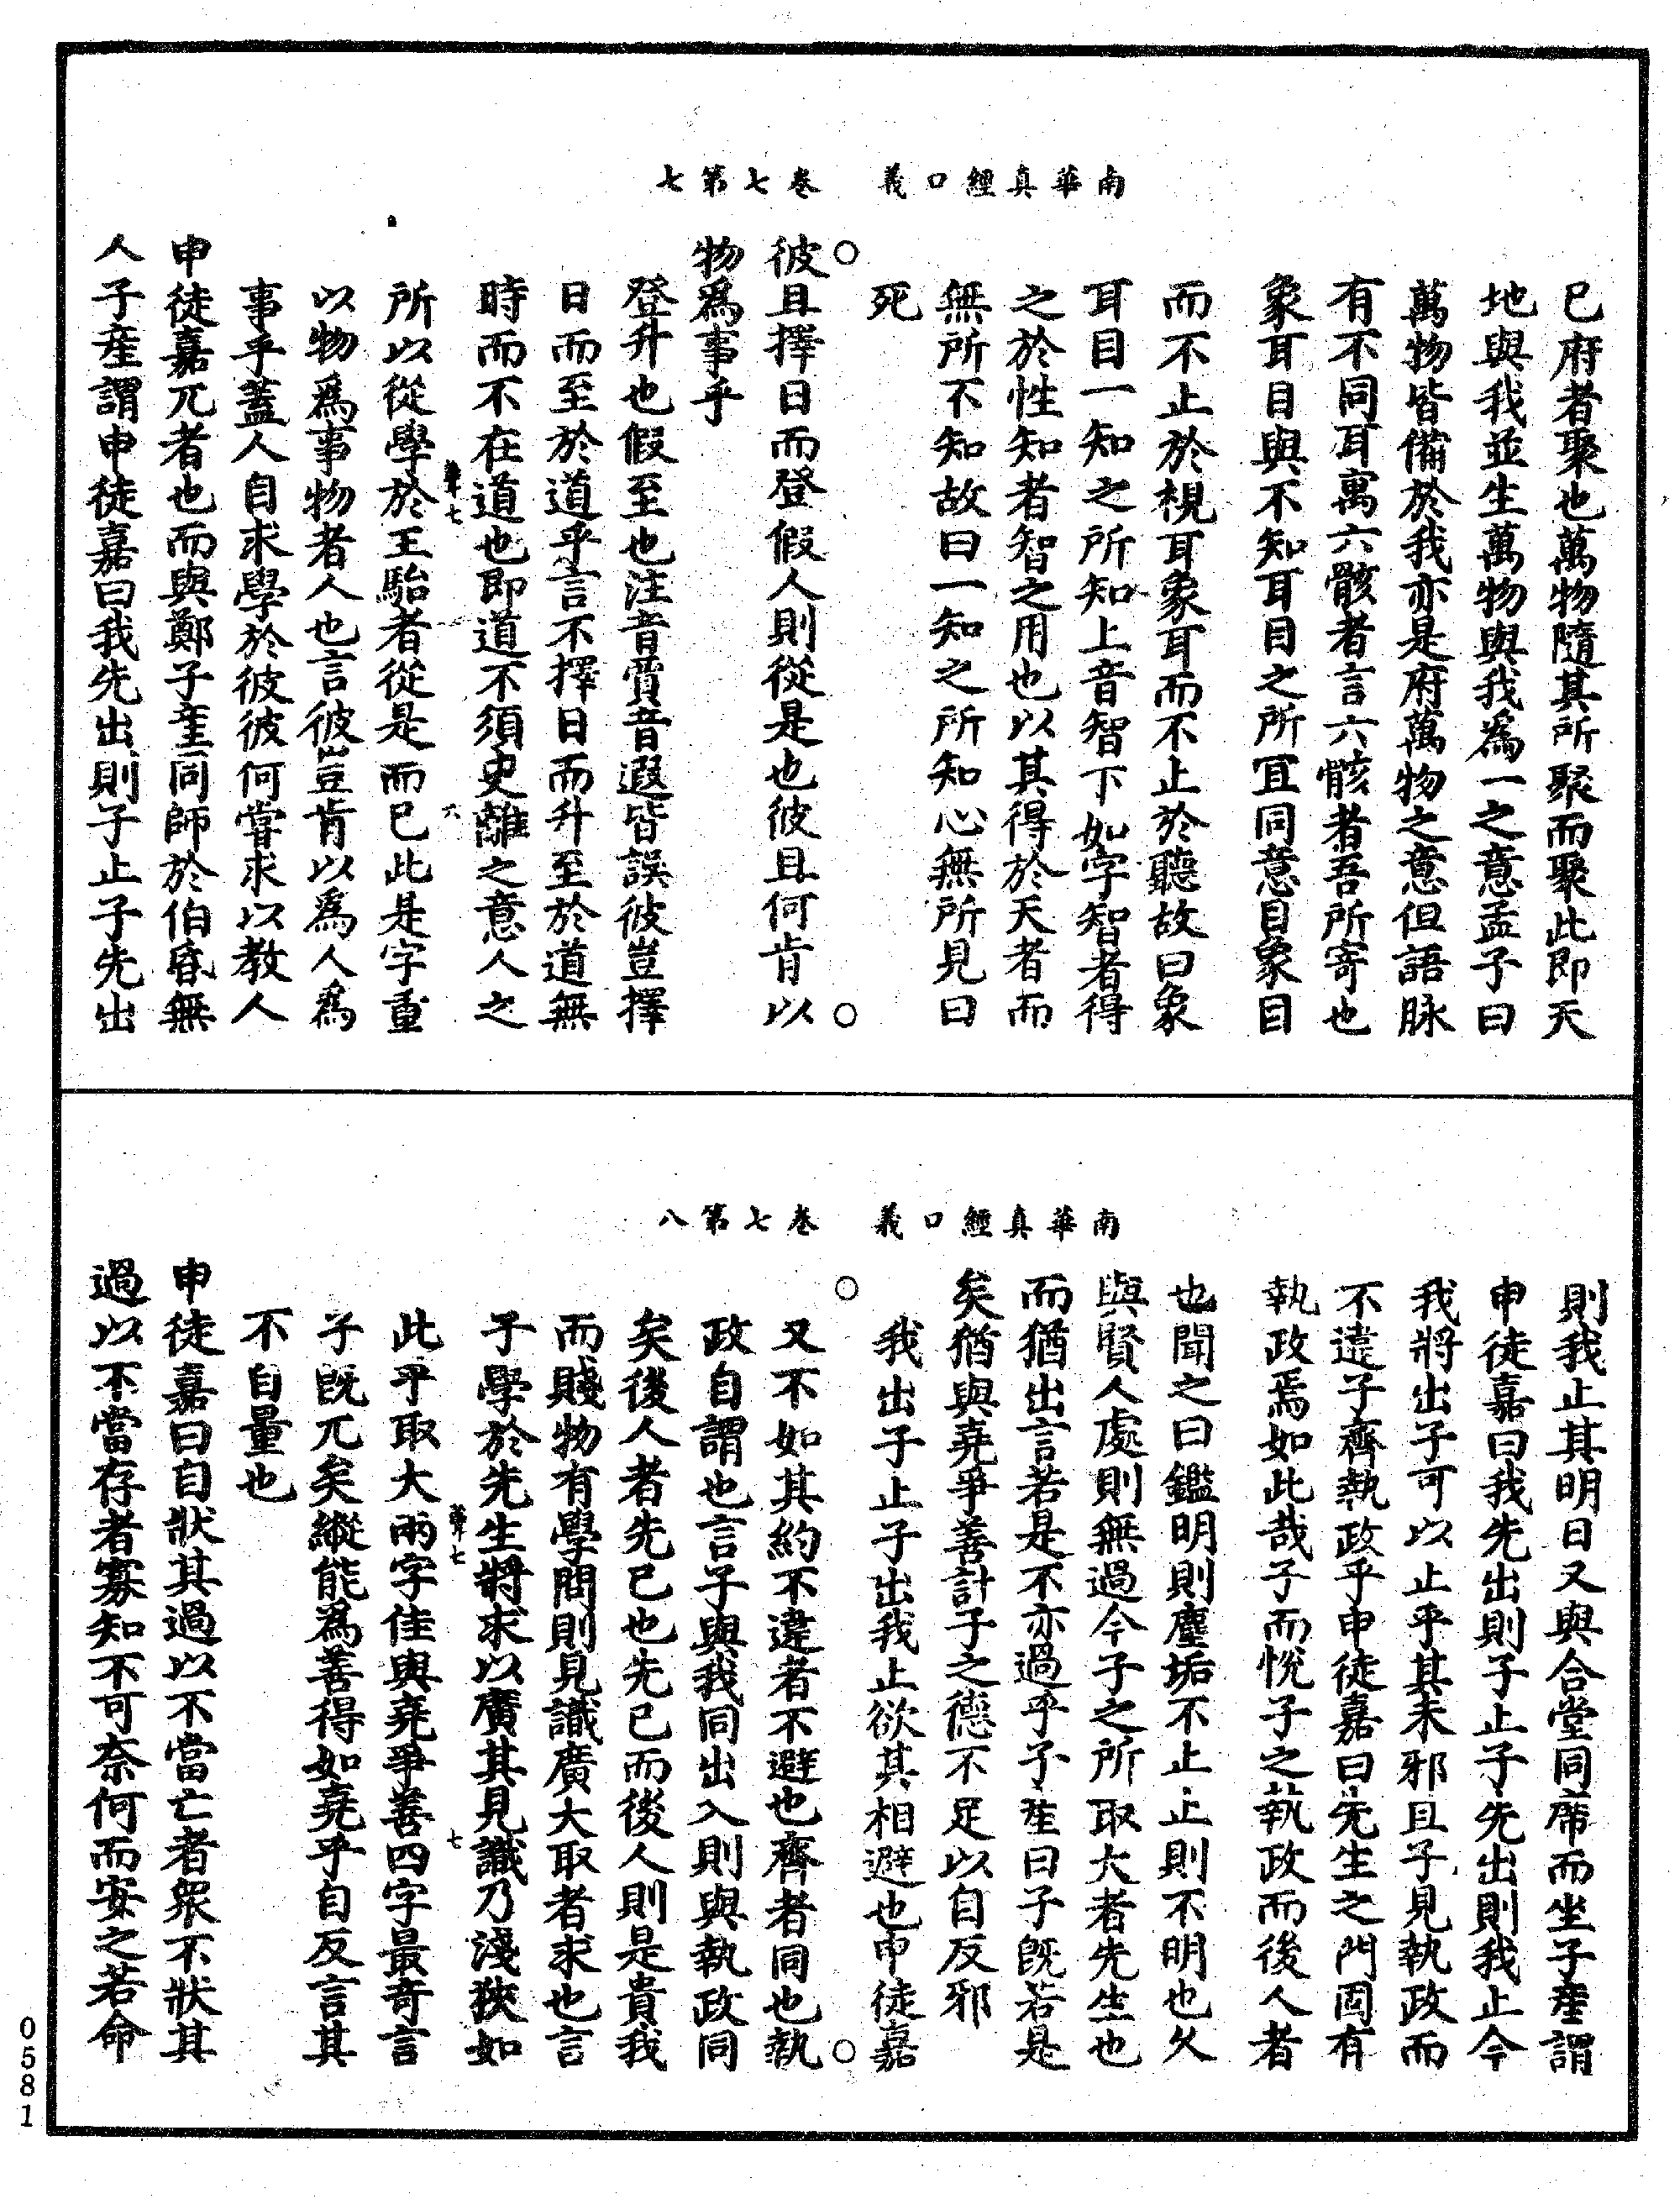 南華真經口義　卷七第七
已府者聚也萬物隨其所聚而聚此即天
地與我並生萬物與我為一之意孟子曰
萬物皆備於我亦是府萬物之意但語脉
有不同耳寓六骸者言六骸者吾所寄也
象耳目與不知耳目之所宜同意目象目
而不止於視耳象耳而不止於聽故曰象
耳目一知之所知上音智下如字智者得
之於性知者智之用也以其得於天者而
無所不知故曰一知之所知心無所見曰
死
彼且擇日而登假人則從是也彼且何肯以
物爲事乎
登升也假至也注音賈音遐皆誤彼豈擇
日而至於道乎言不擇日而升至於道無
時而不在道也即道不須臾離之意人之
所以從學於王駘者從是而已此是字重
以物爲事物者人也言彼豈肯以爲人爲
事乎蓋人自求學於彼彼何嘗求以教人
申徒嘉兀者也而與鄭子產同師於伯昏無
人子產謂申徒嘉曰我先出則子止子先出
南華真經口義　卷七第八
則我止其明日又與合堂同席而坐子產謂
申徒嘉曰我先出則子止子先出則我止今
我將出子可以止乎其未邪且子見執政而
不違子齊執政乎申徒嘉曰先生之門固有
執政焉如此哉子而悅子之執政而後人者
也聞之曰鑑明則塵垢不止止則不明也久
與賢人處則無過今子之所取大者先生也
而猶出言若是不亦過乎子產曰子既若是
矣猶與堯爭善計子之德不足以自反邪
我出子止子出我止欲其相避也申徒嘉
又不如其約不違者不避也齊者同也執
政自謂也言子與我同出入則與執政同
矣後人者先已也先已而後人則是貴我
而賤物有學問則見識廣大取者求也言
子學於先生將求以廣其見識乃淺狹如
此乎取大兩字佳與堯爭善四字最奇言
子既兀矣縱能爲善得如堯乎自反言其
不自量也
申徒嘉曰自狀其過以不當亡者衆不狀其
過以不當存者寡知不可奈何而安之若命
0581